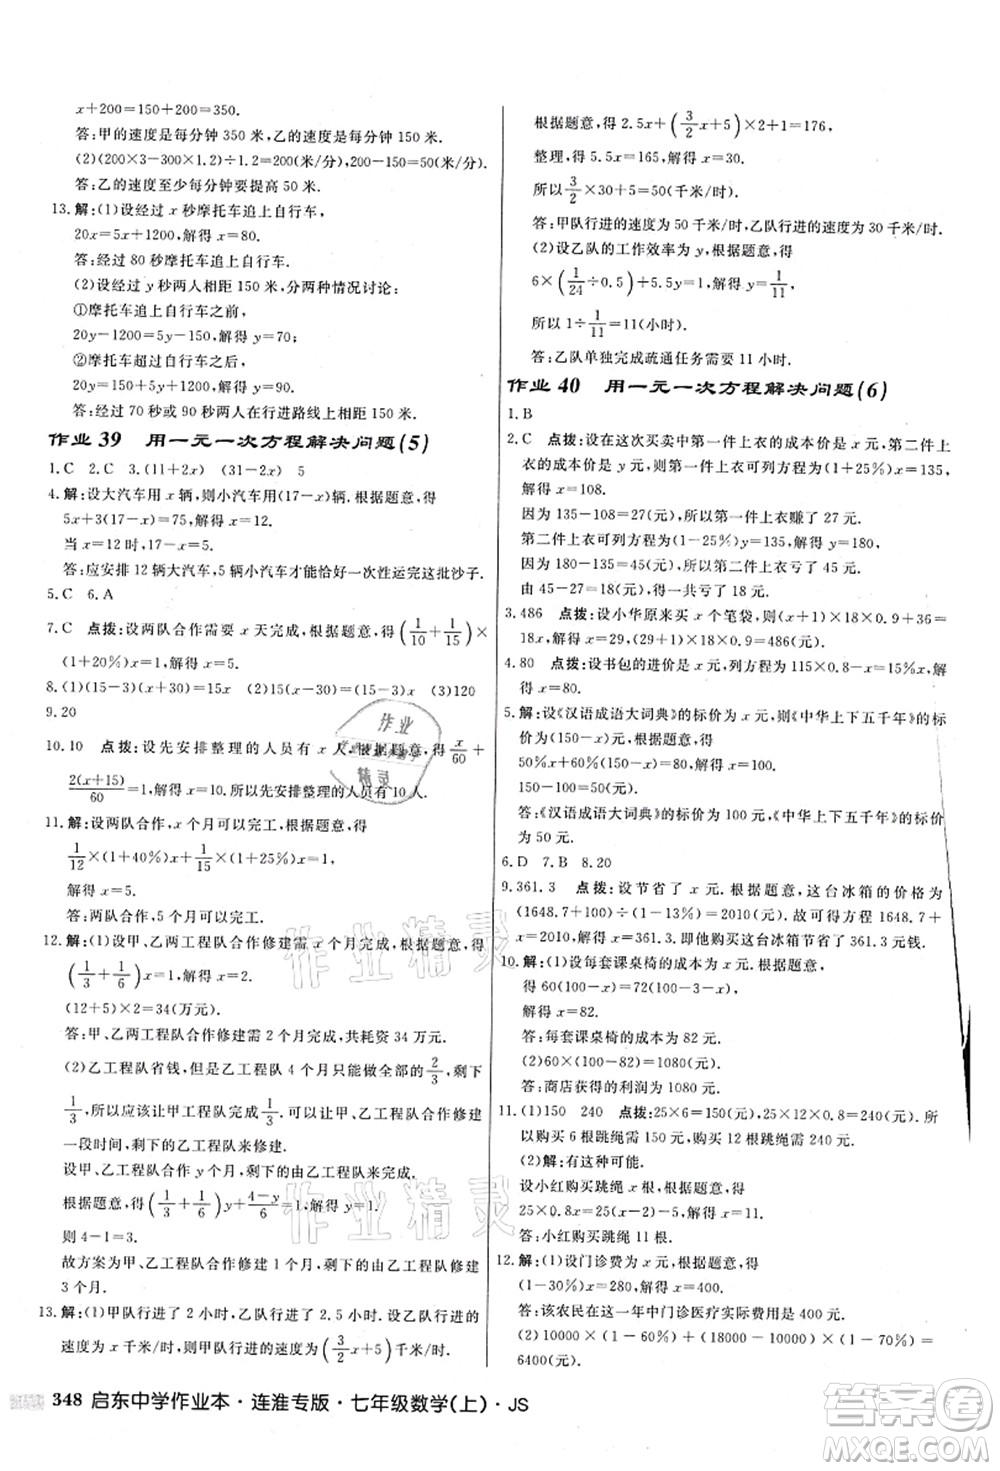 x+200=150+200=350.
答:甲的速度是每分钟 350 米,乙的速度是每分钟 150 米.
(2)(200×3-300×1.2)÷1.2=200,200-150=50(米/分)
答:乙的速度至少每分钟要提高 50 米.
13.解:(1)设经过 x 秒摩托车追上自行车,
20x=5x+1200,解得 x=80.
答:经过 80 秒摩托车追上自行车.
(2)设经过 y 秒两人相距 150 米,分两种情况讨论:
①摩托车追上自行车之前,
20y-1200=5y-150,解得 y=70;
②摩托车超过自行车之后,
20y=150+5y+1200,解得 y=90.
答:经过 70 秒或 90 秒两人在行进路线上相距 150 米.
作业 39 用一元一次方程解决问题(5)
1.C 2.C 3.(11+2x) (31-2x) 5
4.解:设大汽车用 x 辆,则小汽车用(17-x)辆.根据题意,得
5x+3(17-x)=75,解得 x=12.
当 x=12 时,17-x=5.
答:应安排 12 辆大汽车,5 辆小汽车才能恰好一次性运完这批沙子.
5.C 6.A
7.C 点拨:设两队合作需要 x 天完成,根据题意,得(1/10+1/15)×
(1+20%)x=1,解得 x=5.
8.(1)(15-3)(x-3) (2)(15+3)x (3)120
9.20
10.10 点拨:设先安排整理的人员有 x 人.根据题意,得 x/60+
2(x+15)/60=1,解得 x=10.所以先安排整理的人员有 10 人.
11.解:设两队合作,x 个月可以完工,根据题意,得
1/12×(1+40%)x+1/15×(1+25%)x=1,
解得 x=5.
答:两队合作,5 个月可以完工.
12.解:(1)设甲、乙两工程队合作修建需 x 个月完成,根据题意,得
(1/3+1/6)x=1,解得 x=2.
(12+5)×2=34(万元).
答:甲、乙两工程队合作修建需 2 个月完成,共耗资 34 万元.
(2)乙工程队省钱,乙工程队 4 个月完成可以做全部的2/3,剩下
1/3,所以应该让甲工程队完成1/3,可以让甲、乙两工程队合作
一段时间,剩下的由乙工程队来修建.
设甲、乙工程队合作 y 个月,剩下的由乙工程队来完成.
根据题意,得(1/3+1/6)y+(4-y)/6=1,解得 y=1.
则 4-1=3.
故方案为甲、乙工程队合作修建 1 个月,剩下的由乙工程队修建
3 个月.
13.解:(1)甲队行进了 2 小时,乙队行进了 2.5 小时.设乙队行进的
速度为 x 千米/时,则甲队行进的速度为(3/2x+5)千米/时.
根据题意,得 2.5x+(3/2x+5)×2+1=176,
整理,得 5.5x=165,解得 x=30.
所以3/2×30+5=50(千米/时).
答:甲队行进的速度为 50 千米/时,乙队行进的速度为 30 千米/时.
(2)设乙队的工作效率为 y,根据题意,得
6×(1/24÷0.5)+6y=1,解得 y=1/11,
所以 1÷1/11=11(小时).
答:乙队单独完成疏通任务需要 11 小时.
作业 40 用一元一次方程解决问题(6)
1.B
2.C 点拨:设在这次买卖中第一件上衣的成本价是 x 元,第二件上
衣的成本价是 y 元,则第一件上衣可列方程为(1+25%)x=135,
解得 x=108.
因为 135-108=27(元),所以第一件上衣赚了 27 元.
第二件上衣可列方程为(1-25%)y=135,解得 y=180,
因为 180-135=45(元),所以第二件上衣亏了 45 元.
由 45-27=18(元)得一共亏了 18 元.
3.486 点拨:设小华原来买 x 个笔袋,则(x+1)×18×0.9+36=
18x,解得 x=29,(29+1)×18×0.9=486(元).
4.80 点拨:设书包的进价是 x 元,列方程为 115×0.8-x=15%x,
解得 x=80.
5.解:设《汉语成语大词典》的标价为 x 元,则《中华上下五千年》的标价
是(150-x)元.根据题意,得
50%x+60%(150-x)=80,解得 x=100.
150-100=50(元).
答:《汉语成语大词典》的标价为 100 元,《中华上下五千年》的标价
为 50 元.
6.D 7.B 8.20
9.361.3 点拨:设节省了 x 元.根据题意,这台冰箱的价格为
(1648.7+100)÷(1-13%)=2010(元),可得方程 1648.7+
x=2010,解得 x=361.3.即他购买这台冰箱节省了 361.3 元钱.
10.解:(1)设每套课桌椅的成本为 x 元.根据题意,
得 60(100-x)=72(100-3-x),
解得 x=82.
答:每套课桌椅的成本为 82 元.
(2)60×(100-82)=1080(元).
答:商店获得的利润为 1080 元.
11.(1)150 240 点拨:25×6=150(元),25×12×0.8=240(元).所
以购买 6 根跳绳需 150 元,购买 12 根跳绳需 240 元.
(2)解:有这种可能.
设小红购买跳绳 x 根,根据题意,得
25×0.8x=25(x-2)-5,解得 x=11.
答:小红购买跳绳 11 根.
12.解:(1)设门诊费为 x 元.根据题意,得
(1-30%)x=280,解得 x=400.
答:该农民在这一年中门诊医疗实际费用是 400 元.
(2)10000×(1-60%)+(18000-10000)×(1-70%)=
6400(元).
348 启东中学作业本·连淮专版·七年级数学(上)·JS
作业
精灵
作业精灵
作业精灵
答案圈
MXQE.COM